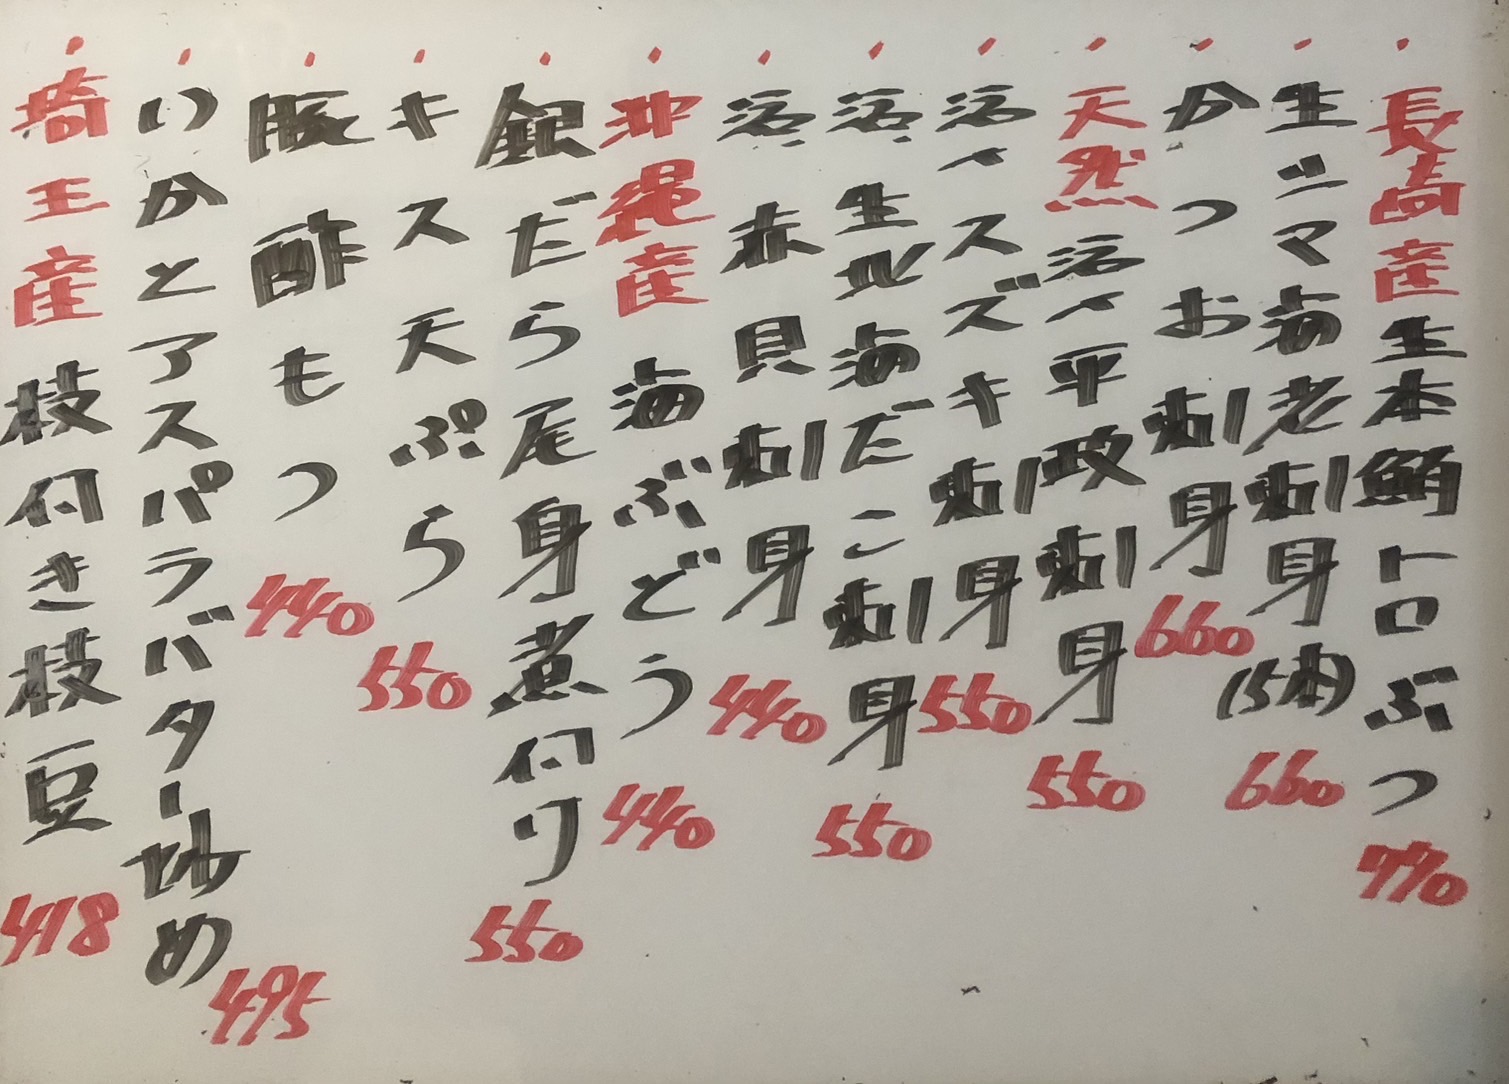 ・長崎産生本鮪トロぶつ 770
・生シマ海老刺身(5本) 660
・かつお刺身 660
・天然活〆平政刺身 550
・活〆スズキ刺身 550
・活〆生北海だこ刺身 550
・活〆赤貝刺身 440
・沖縄産海ぶどう 440
・銀だら尾身煮付け 550
・キス天ぷら 550
・豚酢もつ 440
・いかとアスパラバター炒め 495
・埼玉産枝付き枝豆 418